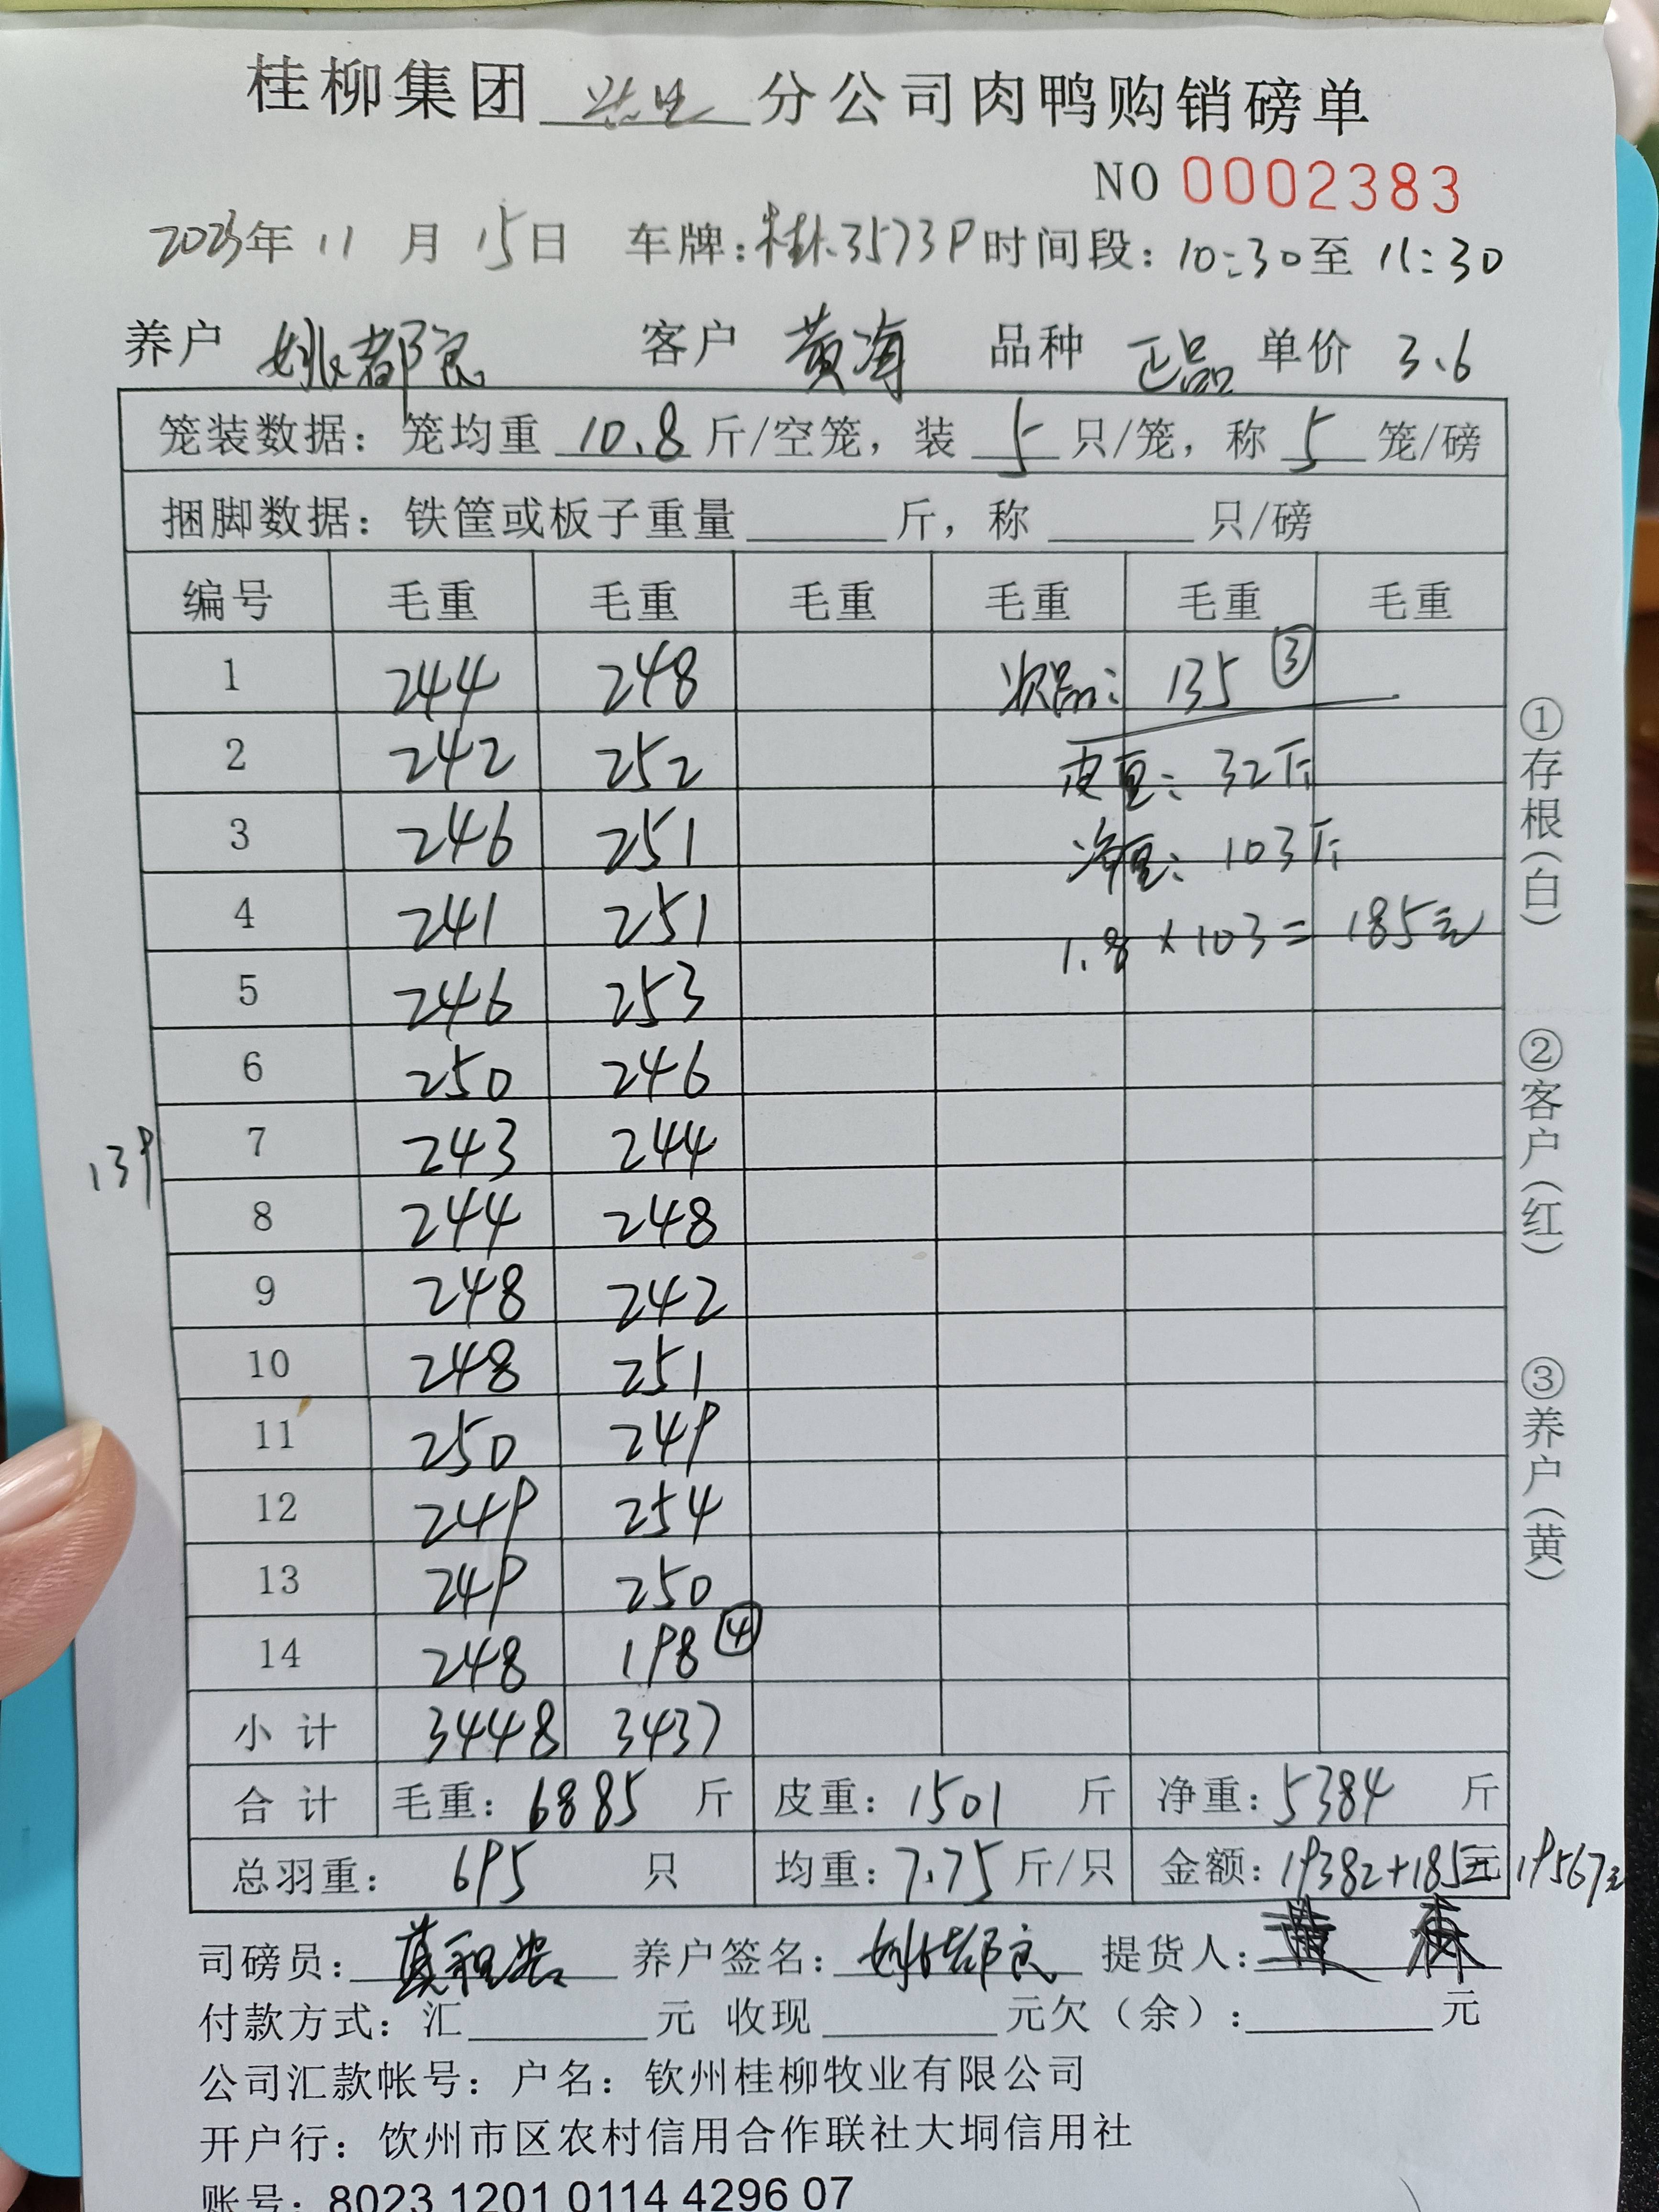 桂柳集团 分公司肉鸭购销磅单
NO 0002383
2023年 11 月 15日 车牌：桂.3573P 时间段：10:30 至 11:30
养户 姚都良 客户 黄海 品种 正品 单价 3.6
笼装数据：笼均重 10.8 斤/空笼，装 5 只/笼，称 5 笼/磅
捆脚数据：铁筐或板子重量 斤，称 只/磅
编号 毛重 毛重 毛重 毛重 毛重 毛重
1 244 248 次品: 135 ③
2 242 252 皮重: 32斤
3 246 251 净重: 103斤
4 241 251 1.8×103= 185元
5 246 253
6 250 246
139
7 243 244
8 244 248
9 248 242
10 248 251
11 250 249
12 249 254
13 249 250
14 248 198 ④
小计 3448 3437
合计 毛重：6885 斤 皮重：1501 斤 净重：5384 斤
总羽重：695 只 均重：7.75 斤/只 金额：19382+185元 19567元
司磅员： 养户签名：姚都良 提货人：
付款方式：汇 元 收现 元欠（余）： 元
公司汇款帐号：户名：钦州桂柳牧业有限公司
开户行：钦州市区农村信用合作联社大垌信用社
账号：8023 1201 0114 4296 07
①存根（白）
②客户（红）
③养户（黄）